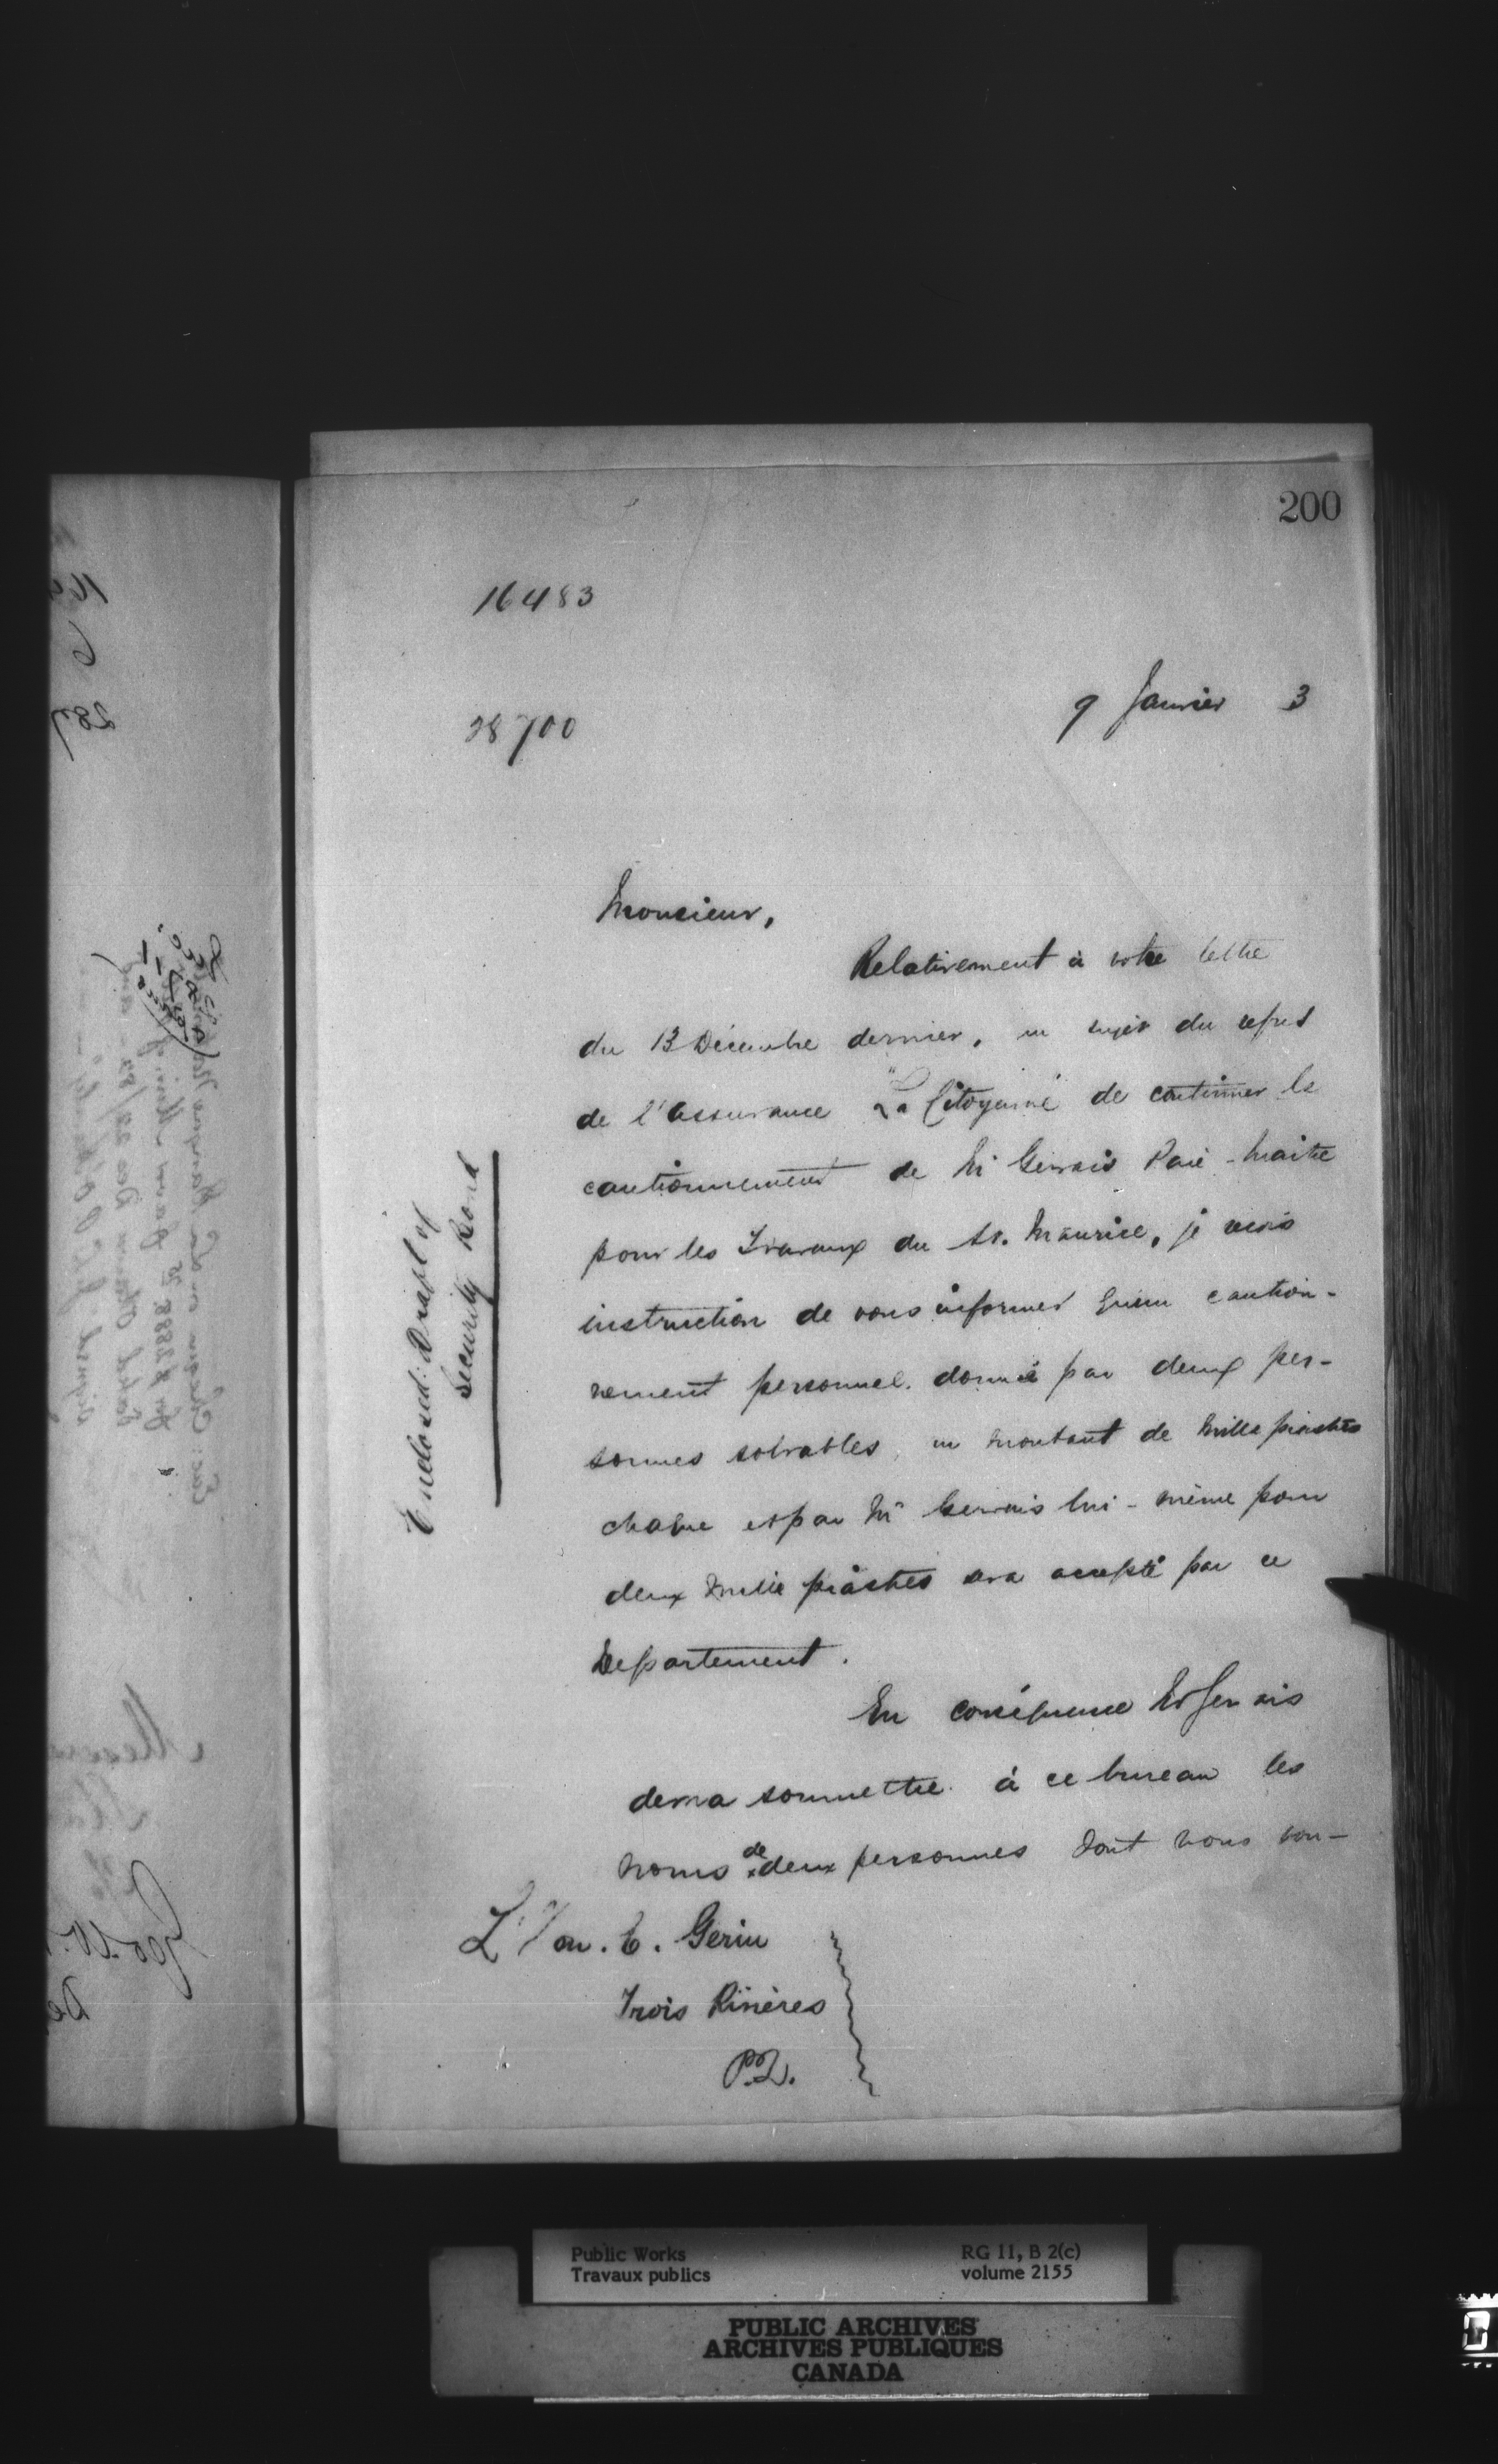 200
16483
9 Janvier 3
28700
Monsieur,
Relativement à votre lettre
du 13 Décembre dernier, au sujet du refus
de l'assurance "La Citoyenne de continuer le
cautionnement de Mr Gervais Paie-Maitre
pour les Travaux du St. Maurice, je reçois
instruction de vous informer qu'un caution-
nement personnel donné par deux per-
sonnes solvables, au montant de mille piastres
chaque et par Mr Gervais lui-même pour
deux mille piastres sera accepté par ce
Département.
En conséquence Mr Gervais
devra soumettre à ce bureau les
noms de deux personnes dont nous pou-
L'Hon. E. Gerin
Trois Rivières
P.Q.
Endorsed: Draft of
Security Bond
Public Works
Travaux publics
RG 11, B 2(c)
volume 2155
PUBLIC ARCHIVES
ARCHIVES PUBLIQUES
CANADA